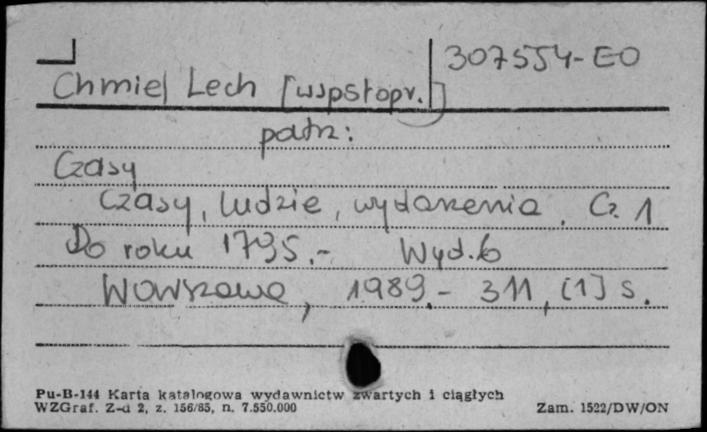 307554-EO
Chmiel Lech [współopr.]
patrz:
Czasy
Czasy, ludzie, wydarzenia. Cz. 1
Do roku 1795.- Wyd. 6
Warszawa, 1989.- 311, [1] s.
Pu-B-144 Karta katalogowa wydawnictw zwartych i ciągłych
WZGraf. Z-d 2, z. 156/85, n. 7.550.000 Zam. 1522/DW/ON